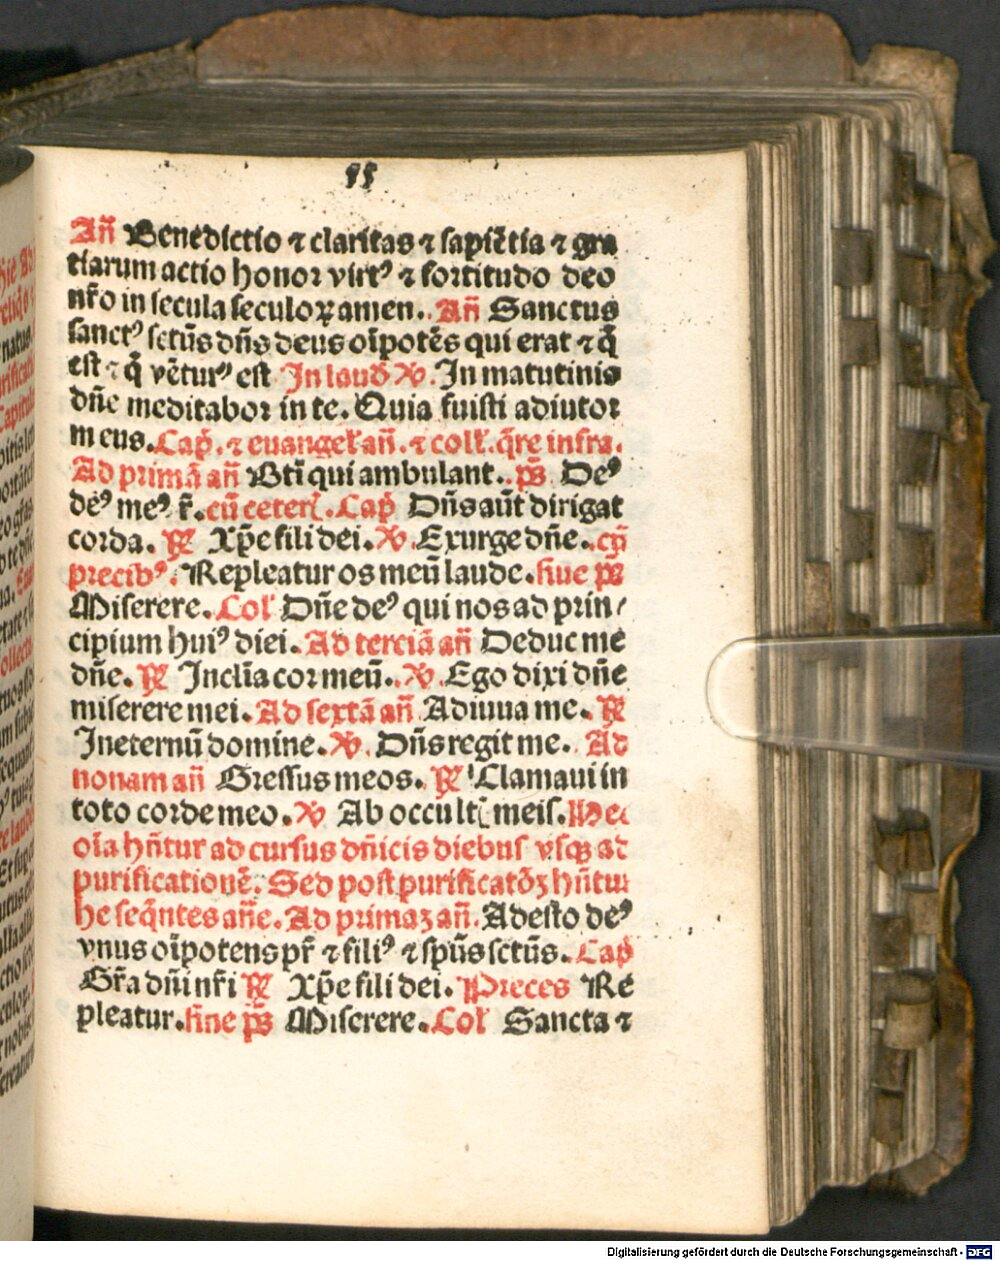 Añ Benedictio ⁊ claritas ⁊ sapiẽtia ⁊ gra
tiarum actio honor virtꝰ ⁊ fortitudo deo
nr̃o in secula seculoꝝ amen. Añ Sanctus
sanctꝰ sctũs dñs deus oĩpotẽs qui erat ⁊ q̃
est ⁊ q̃ vẽturꝰ est In laud̃ ℣. In matutinis
dñe meditabor in te. Quia fuisti adiutor
meus. Cap̃. ⁊ euangeł añ. ⁊ colł. q̃re infra.
Ad primã añ Bti̇̃ qui ambulant. p̃s Deꝰ
deꝰ meꝰ r̃. cũ ceteri. Cap̃ Dñs aũt dirigat
corda. ℟ Xp̃e fili dei. ℣. Exurge dñe. cũ
precibꝰ. Repleatur os meũ laude. siue p̃s
Miserere. Coł Dñe deꝰ qui nos ad prin/
cipium huiꝰ diei. Ad terciã añ Deduc me
dñe. ℟ Inclĩa cor meũ. ℣. Ego dixi dñe
miserere mei. Ad sextã añ Adiuua me. ℟
Ineternũ domine. ℣. Dñs regit me. Ad
nonam añ Gressus meos. ℟ Clamaui in
toto corde meo. ℣ Ab occultꝭ meis. Hec
oĩa hñtur ad cursus dñicis diebus vsqꝫ ad
purificationẽ. Sed post purificatõꝫ hñtur
he seq̃ntes añe. Ad primaꝫ añ. Adesto deꝰ
vnus oĩpotens pr̃ ⁊ filiꝰ ⁊ sp̃us sctũs. Cap̃
Gr̃a dñi nr̃i ℟ Xp̃e fili dei. Preces Re
pleatur. sine p̃s Miserere. Coł Sancta ⁊
Digitalisierung gefördert durch die Deutsche Forschungsgemeinschaft - DFG